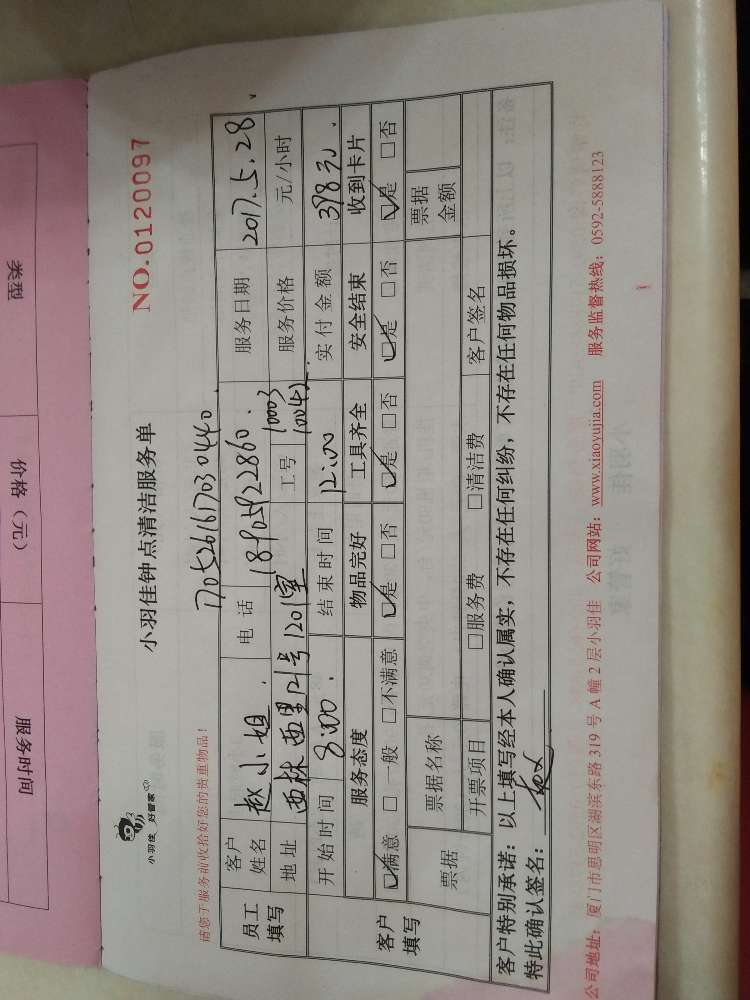 小羽佳 好管家
小羽佳钟点清洁服务单
NO.0120097
请您于服务前收拾好您的贵重物品!
170526161703 0440
员工填写 客户姓名 赵小姐 电话 18905922860 服务日期 2017.5.28
地址 西林西里21号1201室 工号 10003 10042 服务价格 元/小时
开始时间 8:00 结束时间 12:00 实付金额 398元
客户填写 服务态度 物品完好 工具齐全 安全结束 收到卡片
☑满意 □一般 □不满意 ☑是 □否 ☑是 □否 ☑是 □否 ☑是 □否
票据 票据名称 票据金额
开票项目 □服务费 □清洁费 客户签名
客户特别承诺:以上填写经本人确认属实,不存在任何纠纷,不存在任何物品损坏。
特此确认签名:
公司地址:厦门市思明区湖滨东路 319 号 A 幢 2 层小羽佳 公司网站:www.xiaoyujia.com 服务监督热线:0592-5888123
类型
价格(元)
服务时间